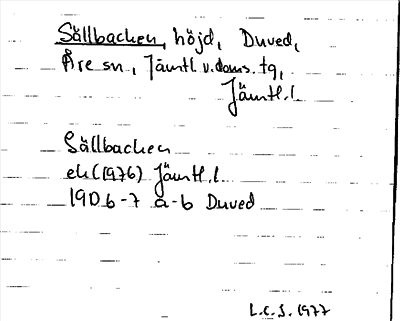 Sällbacken, höjd, Duved,
Åre sn, Jämtl. v. doms. tg,
Jämtl. l
Sällbacken
ek (1976) Jämtl. l
19D 6-7 a-b Duved
L.C.S. 1977